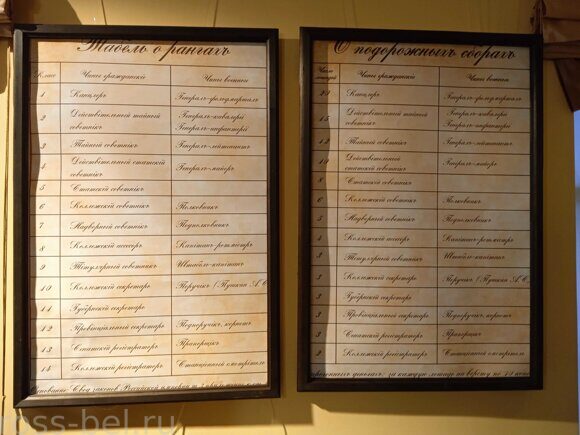 Табель о рангахъ
Класс Чины гражданскiе Чины военные
1 Канцлеръ Генералъ-фельдмаршалъ
2 Действительный тайный советникъ Генералъ-кавалерiи
Генералъ-инфантерiи
3 Тайный советникъ Генералъ-лейтенантъ
4 Действительный статскiй советникъ Генералъ-майоръ
5 Статскiй советникъ
6 Коллежскiй советникъ Полковникъ
7 Надворный советникъ Подполковникъ
8 Коллежскiй асессоръ Капитанъ-ротмистръ
9 Титулярный советникъ Штабсъ-капитанъ
10 Коллежскiй секретарь Поручикъ (Пушкин А.С.
11 Губернскiй секретарь
12 Провинцiальный секретарь Подпоручикъ, корнетъ
13 Статскiй регистраторъ Прапорщикъ
14 Коллежскiй регистраторъ Станцiонный смотритель
Основанiе: Свод законов Российской империи
О подорожныхъ сборахъ
Число лошадей Чины гражданскiе Чины военные
20 Канцлеръ Генералъ-фельдмаршалъ
15 Действительный тайный советникъ Генералъ-кавалерiи
Генералъ-инфантерiи
12 Тайный советникъ Генералъ-лейтенантъ
10 Действительный статскiй советникъ Генералъ-майоръ
8 Статскiй советникъ
6 Коллежскiй советникъ Полковникъ
5 Надворный советникъ Подполковникъ
4 Коллежскiй асессоръ Капитанъ-ротмистръ
3 Титулярный советникъ Штабсъ-капитанъ
3 Коллежскiй секретарь Поручикъ (Пушкин А.С.
3 Губернскiй секретарь
3 Провинцiальный секретарь Подпоручикъ, корнетъ
3 Статскiй регистраторъ Прапорщикъ
2 Коллежскiй регистраторъ Станцiонный смотритель
за каждую лошадь на версту по
ross-bel.ru